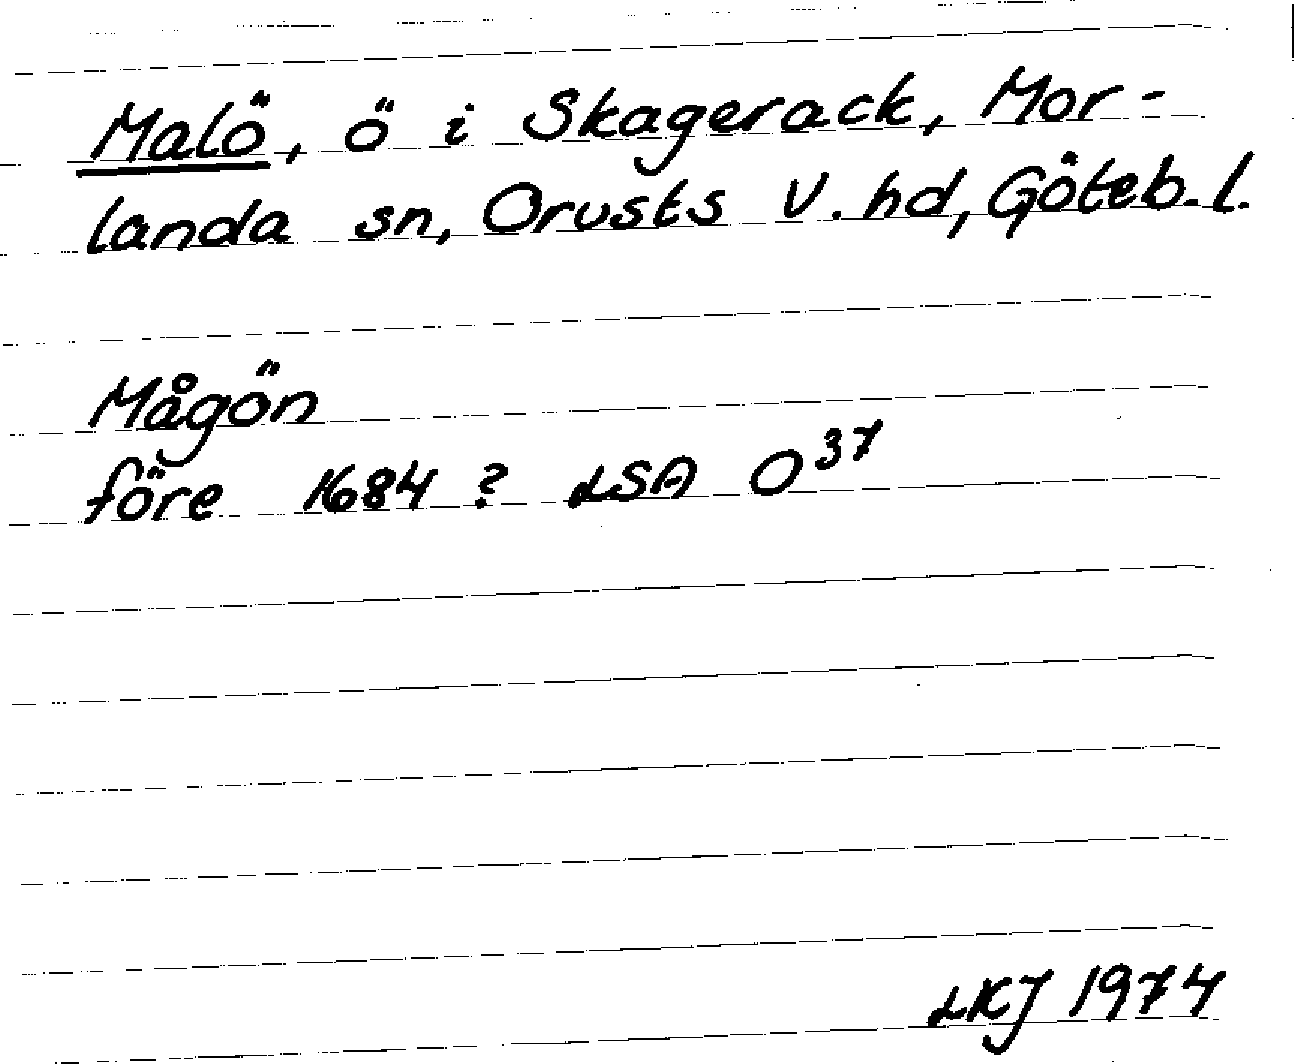 Malö, ö i Skagerack, Mor=
landa sn, Orusts V. hd, Göteb. l.
Mågön
före 1684 ? LSA O³⁷
LKJ 1974